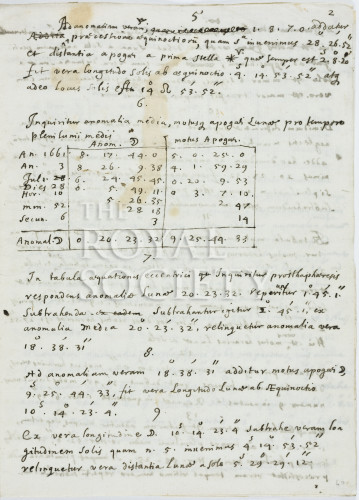 5 2
Ad anomaliam veram 1. 8. 7. 0 additur
praecessione aequinoctiorum quam §. invenimus 28. 26. 52
et distantia apogaei a prima stella ♈ quae semper est 2. 8. 20
fit vera longitudo Solis ab aequinoctio 4. 14. 53. 52 atq
adeo locus solis est 14 ♌ 53. 52.
6.
Inquiritur anomalia media, motusq apogaei Lunae pro tempore
plenilunii medij
Anom. D motus Apogaei
An. 1661 8. 17. 44. 0 5. 0. 25. 0
An. 3 8. 26. 9 38 4. 1. 59. 29
Julj 28 6. 24. 45. 45 0. 20. 9. 53
Dies 28 0. 5. 49. 11 0 3. 7. 10
Hor.
mm. 52 5 26. 35 2. 47
28 18
Secun. 6 3 14
Anomal. D 0 20. 23. 32 9. 25. 44. 33
7.
In tabula aequationis eccentrici Inquiritur prosthaphaeresis
respondens anomaliae Lunae 20. 23. 32. reperitur 1. 45. 1
Subtrahenda. Subtrahantur igitur 1. 45. 1. ex
anomalia media 20. 23. 32, relinquetur anomalia vera
18. 38. 31
8.
Ad anomaliam veram 18. 38. 31 additur motus apogaei D
9. 25. 44. 33, fit vera Longitudo Lunae ab Aequinoctio
10. 14. 23. 4.
9
Ex vera longitud. D. 10. 14. 23. 4 subtrahe veram lon
gitudinem solis quam n. 5. invenimus 4. 14. 53. 52
relinquetur vera distantia Lunae a sole 5. 29. 29. 12
THE
ROYAL
SOCIETY